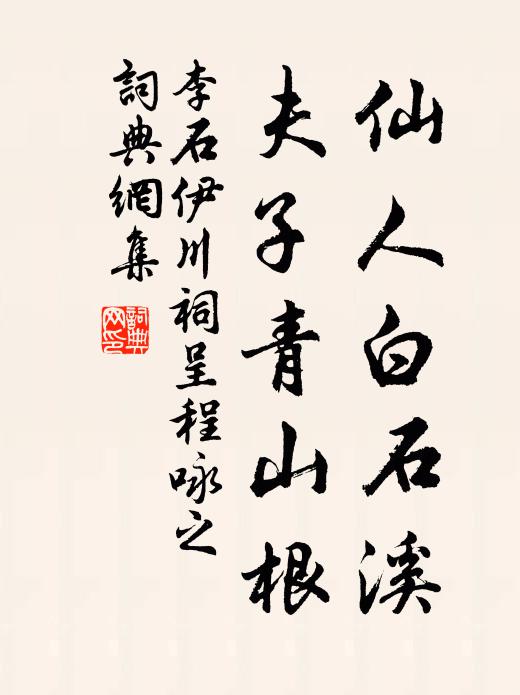 仙人白石溪
夫子青山根
李石伊川祠呈程咏之
詞典網集
詞典网印